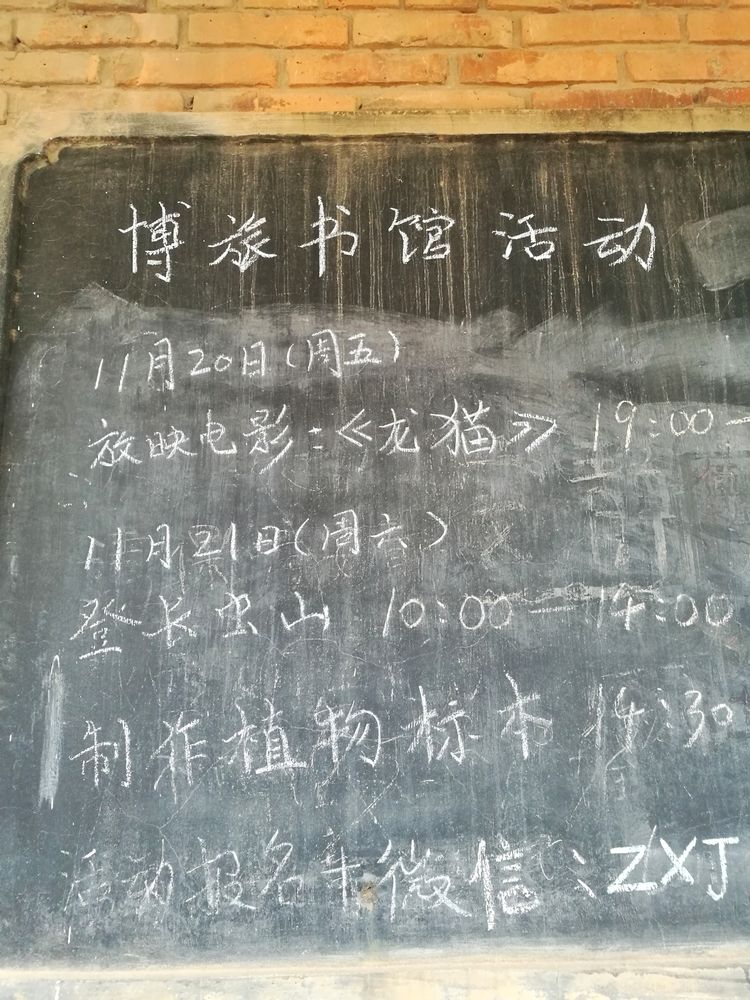 博旅书馆活动
11月20日(周五)
放映电影:《龙猫》 19:00—
11月21日(周六)
登长虫山 10:00—14:00
制作植物标本 14:30
活动报名 微信:ZXJ